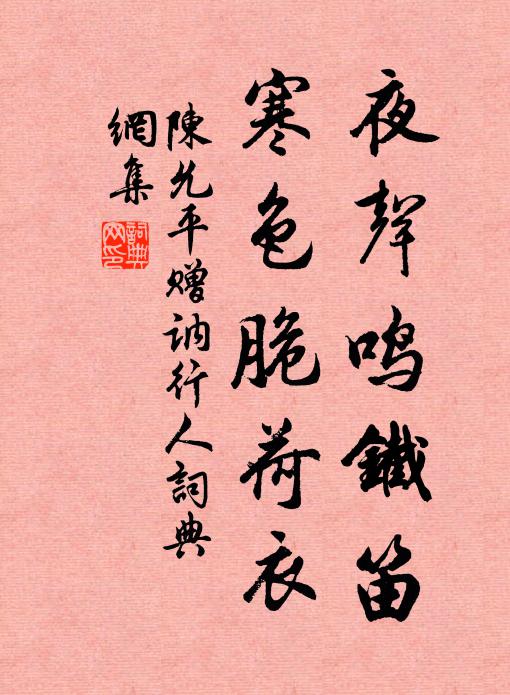 夜聲鳴鐵笛
寒色脆荷衣
陳允平贈訥行人詞典
網集
詞典
网印